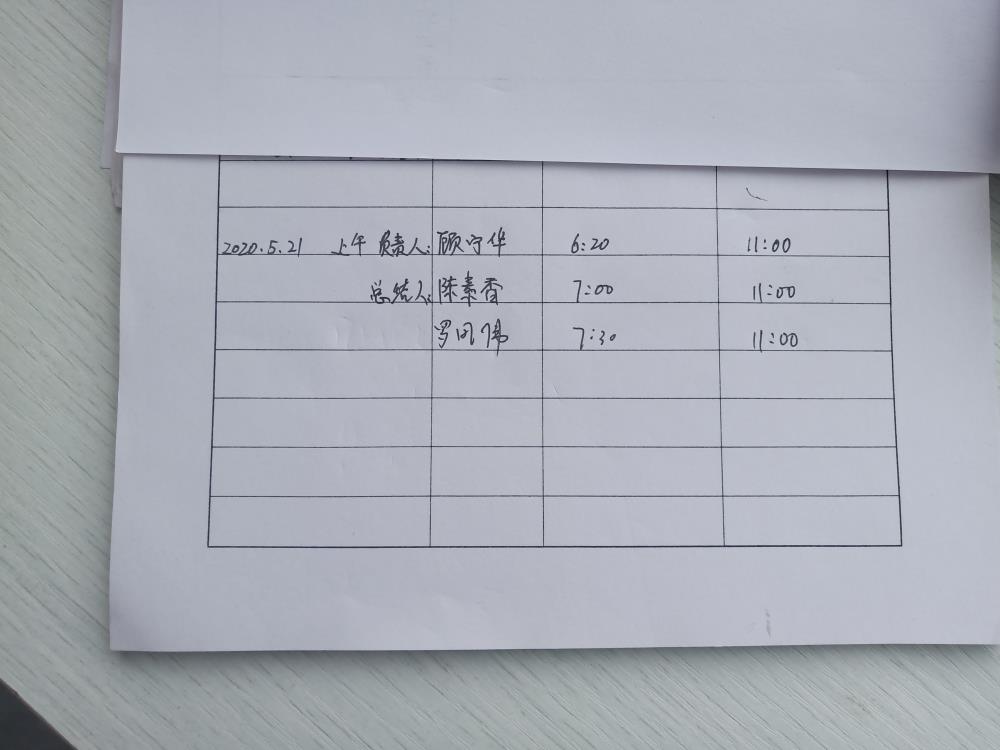 2020.5.21 上午 负责人: 顾守华 6:20 11:00
总结人: 陈素香 7:00 11:00
罗凤伟 7:30 11:00